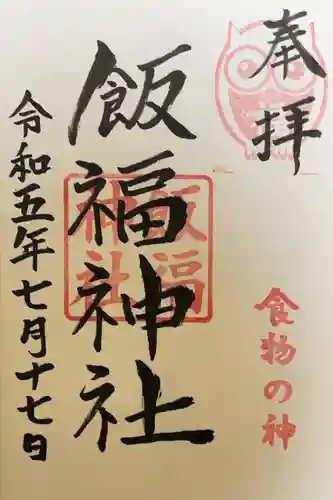 奉拝
飯福神社
飯福
神社
食物の神
令和五年七月十七日